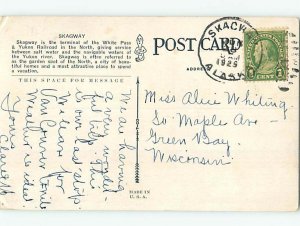 SKAGWAY
Skagway is the terminal of the White Pass
& Yukon Railroad in the North, giving service
between salt water and the navigable waters
of the Yukon river. Skagway is often referred to
as the garden spot of the North, a city of beau-
tiful homes and a most attractive place to spend
a vacation.
THIS SPACE FOR MESSAGE
We are having
a very wonder-
ful trip. This
is our last stop.
We leave for
Vancouver
is ideal.
POST CARD
ADDRESS
SKAGWAY
1929
ALASKA
Miss Alice Whiting
So Maple Ave-
Green Bay.
Wisconsin
MADE IN
U.S.A.